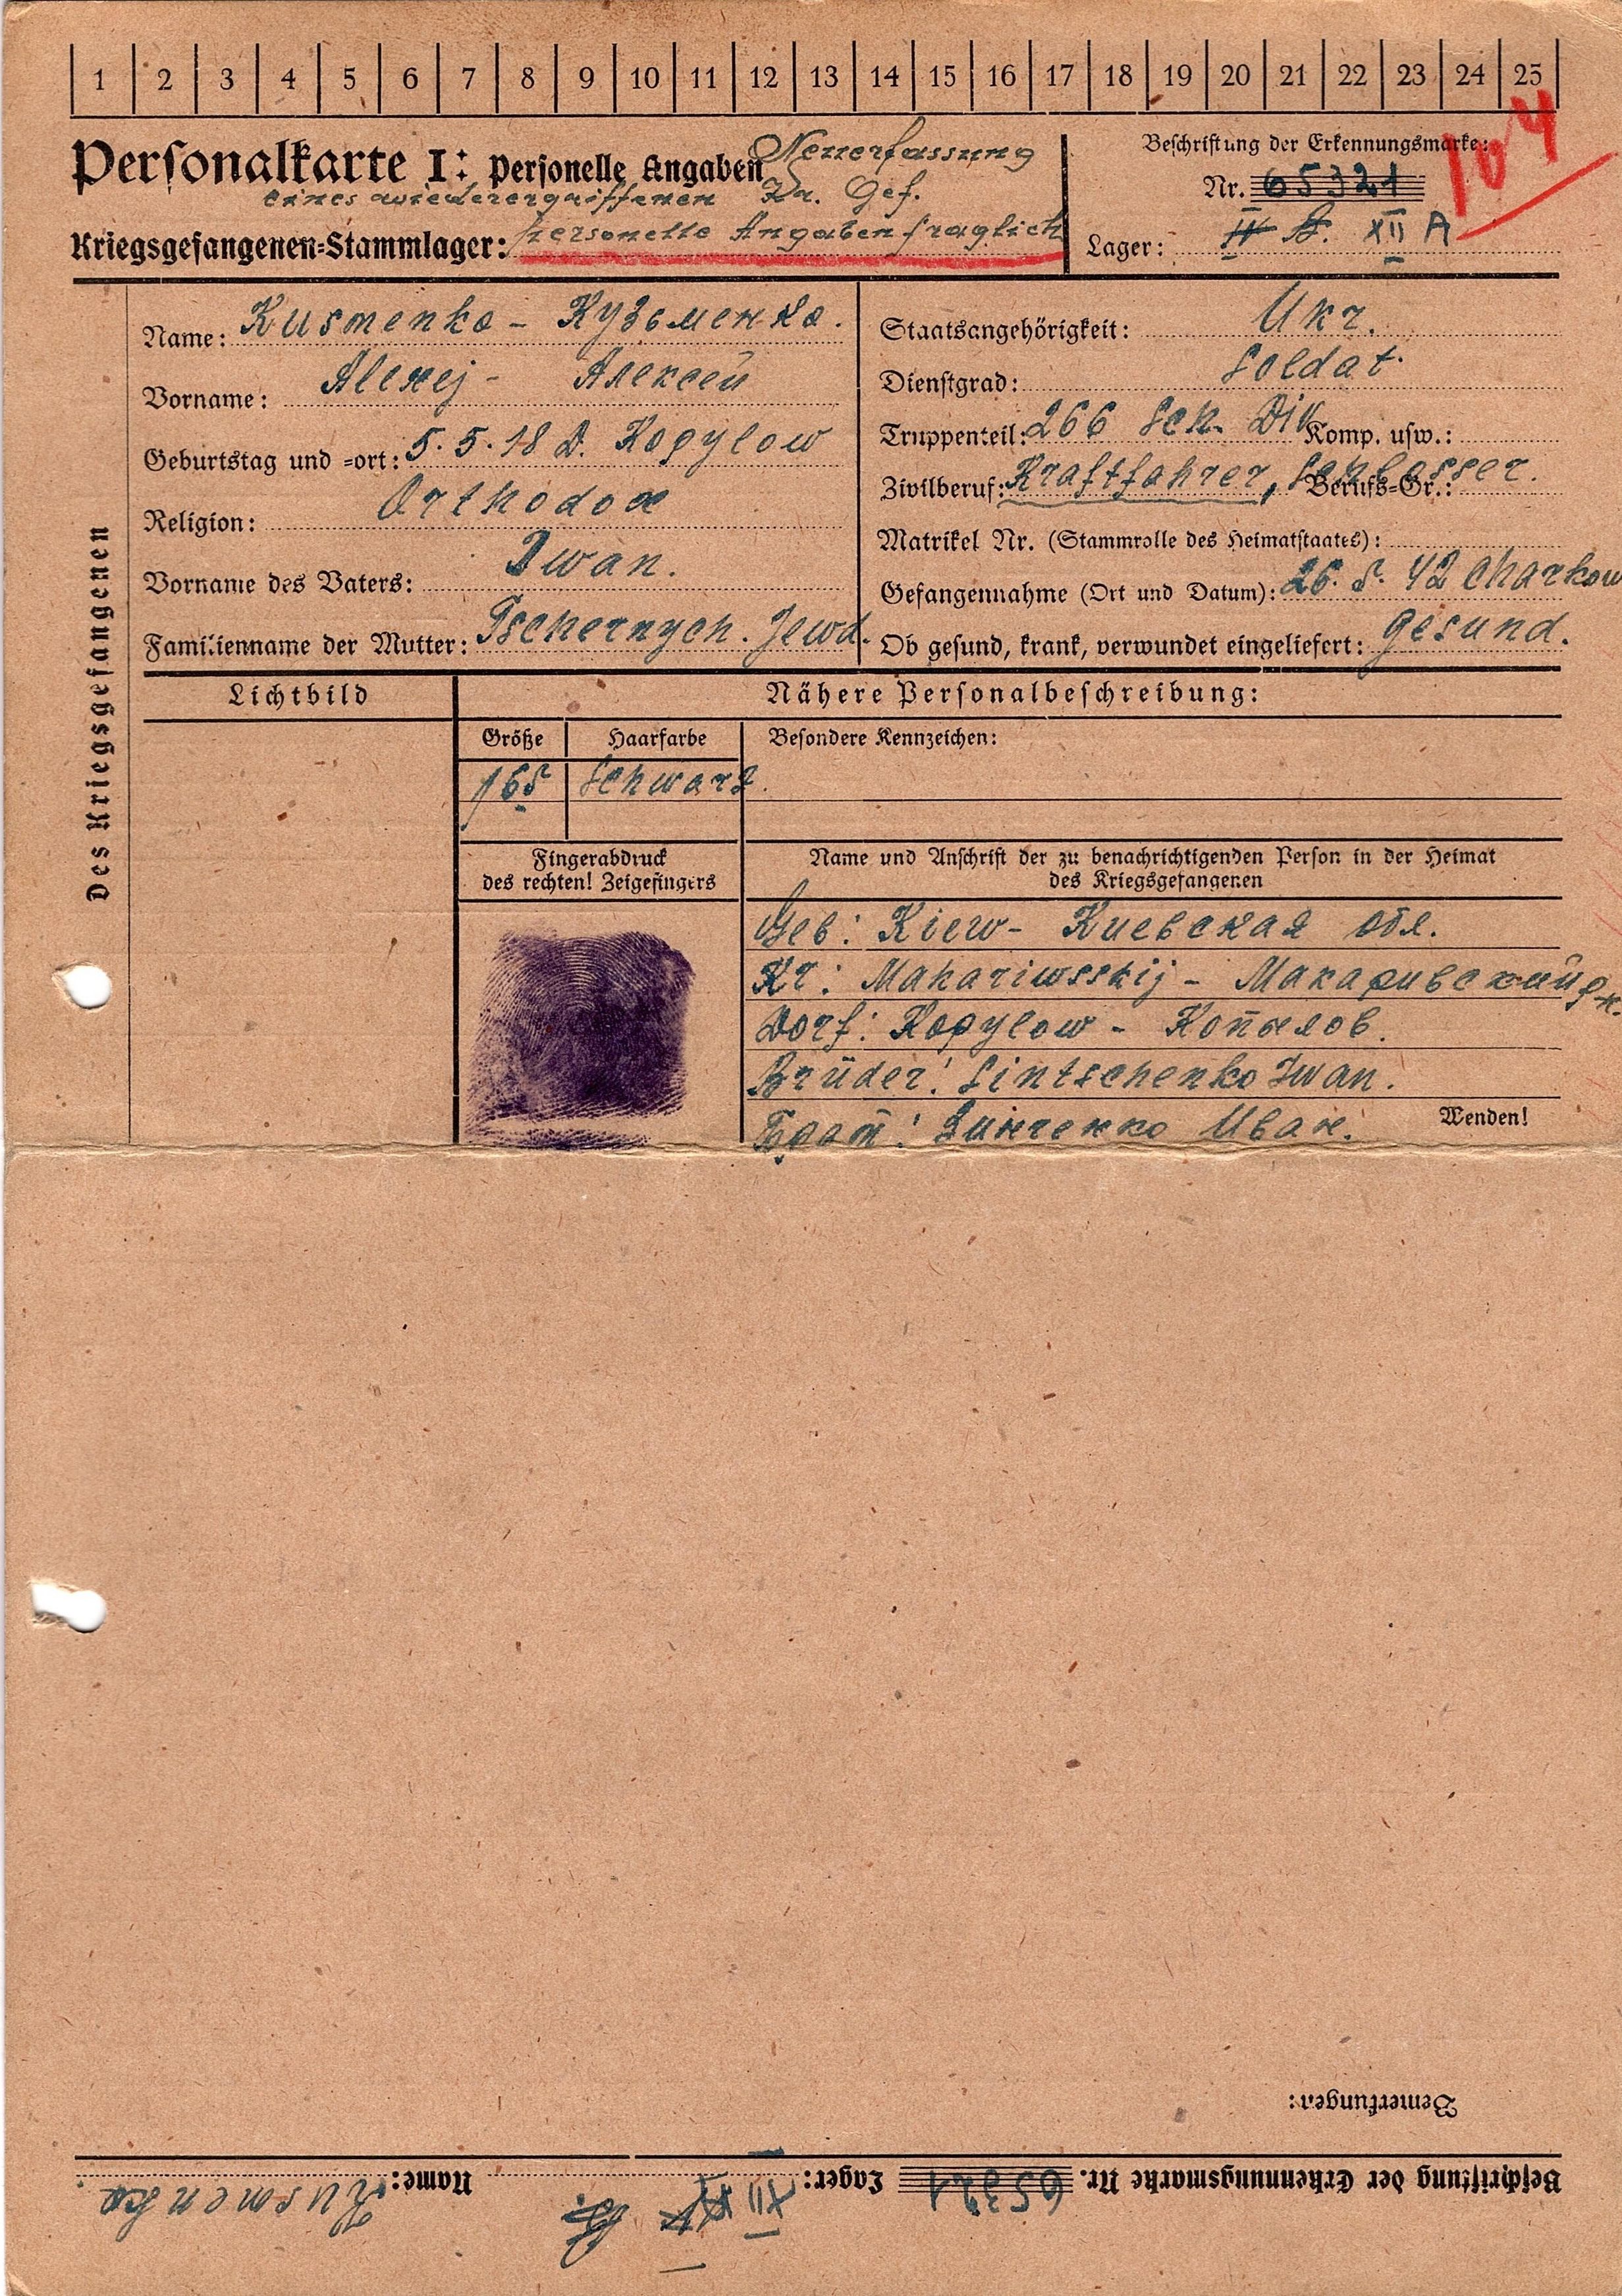 1 2 3 4 5 6 7 8 9 10 11 12 13 14 15 16 17 18 19 20 21 22 23 24 25
104
Personalkarte I: Personelle Angaben Neuerfassung
eines wiederergriffenen Kr. Gef.
Kriegsgefangenen-Stammlager: personelle Angaben fraglich
Beschriftung der Erkennungsmarke:
Nr. 65321
Lager: XII A
Des Kriegsgefangenen
Name: Kusmenko - Кузьменко.
Vorname: Alexej - Алексей
Geburtstag und -ort: 5.5.18 D. Kopylow
Religion: Orthodox
Vorname des Vaters: Iwan.
Familienname der Mutter: Tschernych. Jewd.
Staatsangehörigkeit: Ukr.
Dienstgrad: Soldat.
Truppenteil: 266 Sch. Div Komp. usw.:
Zivilberuf: Kraftfahrer, Schlosser. Berufs-Gr.:
Matrikel Nr. (Stammrolle des Heimatstaates):
Gefangennahme (Ort und Datum): 26.5.42 Charkow
Ob gesund, krank, verwundet eingeliefert: gesund.
Lichtbild
Nähere Personalbeschreibung:
Größe Haarfarbe Besondere Kennzeichen:
165 Schwarz.
Fingerabdruck
des rechten! Zeigefingers
Name und Anschrift der zu benachrichtigenden Person in der Heimat
des Kriegsgefangenen
Geb: Kiew - Киевская обл.
Kr: Makariwsskij - Макаривский р-н.
Dorf: Kopylow - Копылов.
Brüder: Sintschenko Iwan.
Брат: Зинченко Иван.
Wenden!
Bemerkungen:
Beschriftung der Erkennungsmarke Nr. 65321 Lager: XII Name: Kusmenko